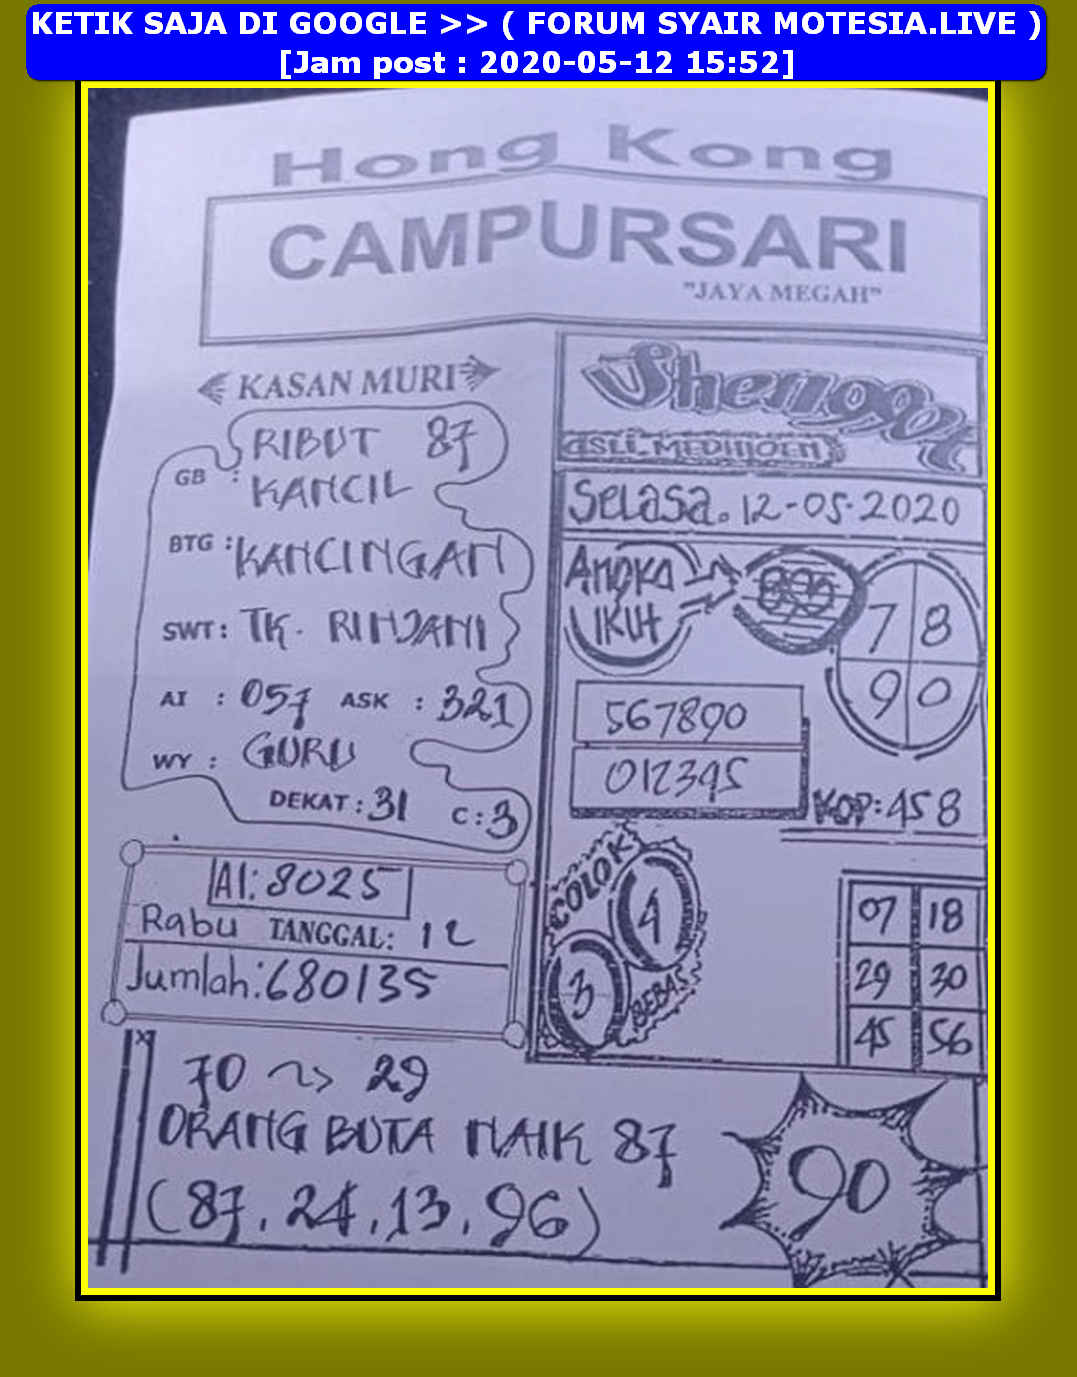 KETIK SAJA DI GOOGLE >> ( FORUM SYAIR MOTESIA.LIVE )
[Jam post : 2020-05-12 15:52]
Hong Kong
CAMPURSARI
"JAYA MEGAH"
KASAN MURI
RIBUT 87
GB : KANCIL
BTG : KANCINGAN
SWT : TK. RINJANI
AI : 057 ASK : 321
WY : GURU
DEKAT : 31 C : 3
AI: 8025
Rabu TANGGAL: 12
Jumlah: 680135
Shengpot
ASLI MEDIIJOEN
Selasa. 12-05-2020
ANGKA
IKUT
7 8
9 0
567890
012345
KOP: 458
COLOK
4
3
BEBAS
07 18
29 30
45 56
70 ~> 29
ORANG BUTA NAIK 87
(87, 24, 13, 96)
90